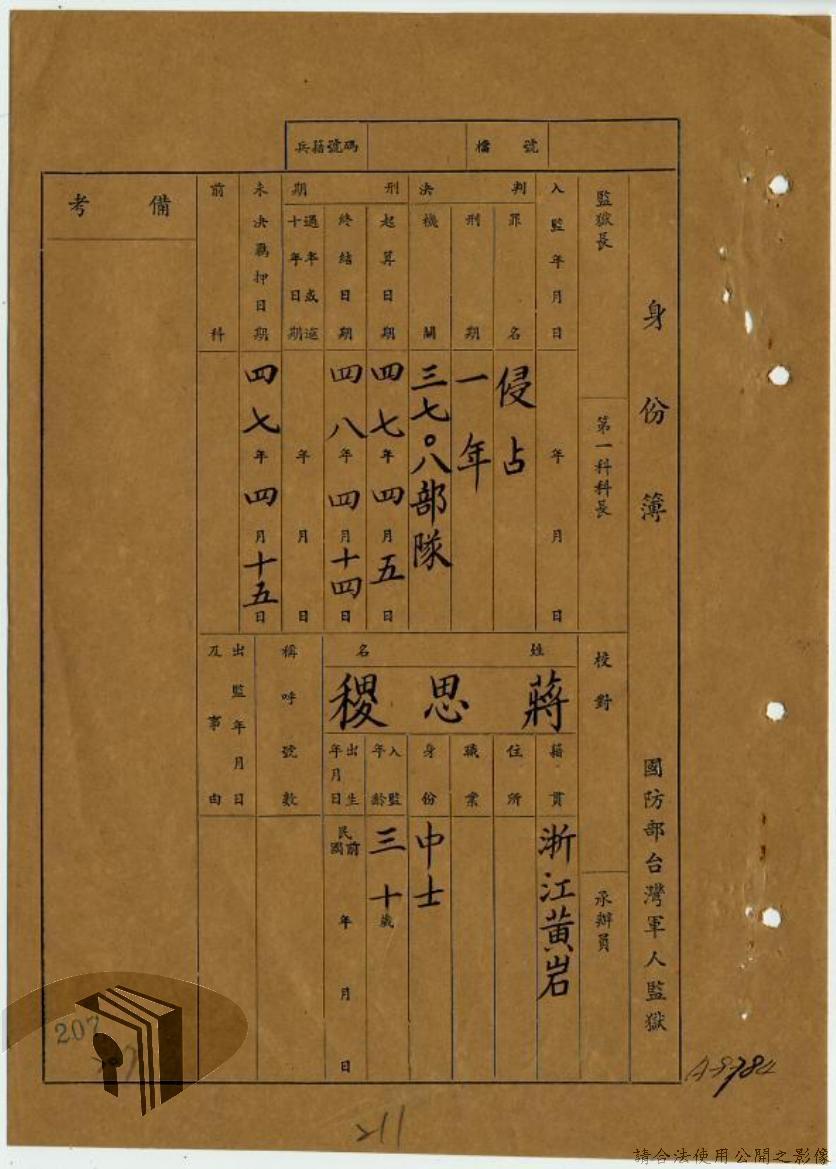 兵籍號碼
檔號
身份簿
國防部台灣軍人監獄
監獄長
第一科科長
校對
承辦員
入監年月日
年月日
判決
罪名
侵占
刑期
一年
機關
三七〇八部隊
刑期
起算日期
四七年四月五日
終結日期
四八年四月十四日
年月日
未決羈押日期
四七年四月十五日
前科
備考
姓名
蔣思稷
籍貫
浙江黃岩
住所
職業
身份
中士
入監年齡
三十歲
出生年月日
民國前
年月日
稱呼號數
出監年月日及事由
207
211
請合法使用公開之影像